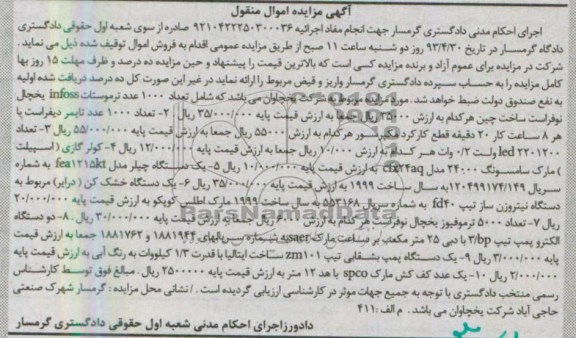 آگهی مزایده اموال منقول
اجرای احکام مدنی دادگستری گرمسار جهت انجام مفاد اجرائیه ۹۲۱۰۴۲۲۲۵۰۳۰۰۰۳۶ صادره از سوی شعبه اول حقوقی دادگستری
دادگاه گرمسار در تاریخ ۹۳/۴/۳۰ روز دو شنبه ساعت ۱۱ صبح از طریق مزایده عمومی اقدام به فروش اموال توقیف شده ذیل می نماید.
شرکت در مزایده برای عموم آزاد و برنده مزایده کسی است که بالاترین قیمت را پیشنهاد و حین مزایده ده درصد و ظرف مهلت ۱۵ روز بها
کامل مزایده را به حساب سپرده دادگستری گرمسار واریز و فیض مربوط را ارائه نماید در غیر این صورت کل ده درصد دریافت شده اولیه
به نفع صندوق دولت ضبط خواهد شد. مورد مزایده شرکت یخچاوان می باشد که شامل تعداد ۱۰۰۰ عدد ترموستات infoss یخچال
نوفراست ساخت چین هرکدام به ارزش ۳۵۰۰۰ ریال جمعا به ارزش قیمت پایه ۳۵/۰۰۰/۰۰۰ ریال ۲- تعداد ۱۰۰۰ عدد تایمر دیفراست با
هر ۸ ساعت کار ۲۰ دقیقه قطع کارکرد هرکدام به ارزش ۵۵۰۰۰ ریال جمعا به ارزش قیمت پایه ۵۵/۰۰۰/۰۰۰ ریال ۳- تعداد
۱۲۰۰ led ۲۲۰ ولت ۰/۲ وات هر کدام به ارزش ۱۰/۰۰۰ ریال جمعا به ارزش قیمت پایه ۱۲/۰۰۰/۰۰۰ ریال ۴- کولر گازی (اسپیلت
) مارک سامسونگ ۲۴۰۰۰ مدل به ارزش قیمت پایه ۱۰/۰۰۰/۰۰۰ ریال ۵- یک دستگاه چیلر مدل fea1215kt به شماره
سریال ۱۲۰۴۹۹۱۷۴/۱۴۹ به سال ساخت ۱۹۹۹ به ارزش قیمت پایه ۳۵/۰۰۰/۰۰۰ ریال ۶- یک دستگاه خشک کن (درایر) مربوط به
دستگاه نیتروژن ساز تیپ fd۴۰ به شماره سریال ۵۵۳۱۶۸ به سال ساخت ۱۹۹۹ مارک اطلس کوپکو به ارزش قیمت پایه ۲۰/۰۰۰/۰۰۰
ریال ۷- تعداد ۵۰۰۰ ترموفیوز یخچال نوفراست هر کدام به ارزش ریال جمعا به ارزش قیمت پایه ۳۰/۰۰۰/۰۰۰ ریال. ۸- دو دستگاه
الکترو پمپ تیپ ۳/bp با دبی ۲۵ متر مکعب بر ساعت مارک saer به شماره سریالهای ۱۸۸۱۹۴۴ و ۱۸۸۱۷۶۲ جمعا به ارزش قیمت
پایه ۳/۰۰۰/۰۰۰ ریال ۹- یک دستگاه پمپ بشقابی تیپ zm۱۰۱ ساخت ایتالیا با قدرت ۱/۳ کیلووات به رنگ آبی به ارزش قیمت پایه
۲/۰۰۰/۰۰۰ ریال ۱۰- یک عدد کف کش مارک spco با هد ۱۲ متر به ارزش قیمت پایه ۲۵۰۰۰۰۰ ریال. مبالغ فوق توسط کارشناس
رسمی منتخب دادگستری با توجه به جمیع جهات موثر در کارشناسی ارزیابی گردیده است. /نشانی محل مزایده: گرمسار شهرک صنعتی
حاجی آباد شرکت یخچاوان می باشد. م الف: ۴۱۱
دادورز اجرای احکام مدنی شعبه اول حقوقی دادگستری گرمسار
ParsNamadData